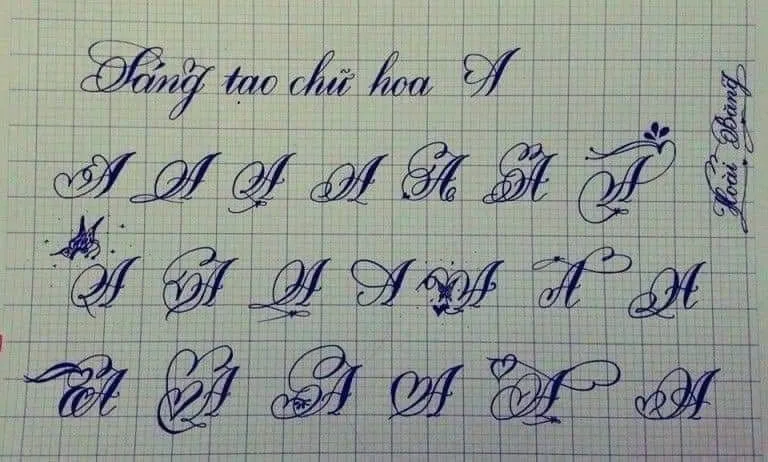 Sáng tạo chữ hoa A
A A A A A A A
A A A A A A A
A A A A A A
Hoài Băng